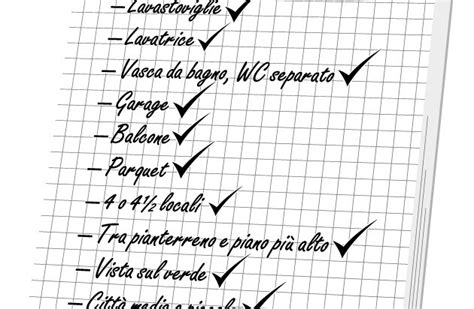 – Lavastoviglie ✓
– Lavatrice ✓
– Vasca da bagno, WC separato ✓
– Garage ✓
– Balcone ✓
– Parquet ✓
– 4 o 4½ locali ✓
– Tra pianterreno e piano più alto ✓
– Vista sul verde ✓
– Città media o piccola ✓